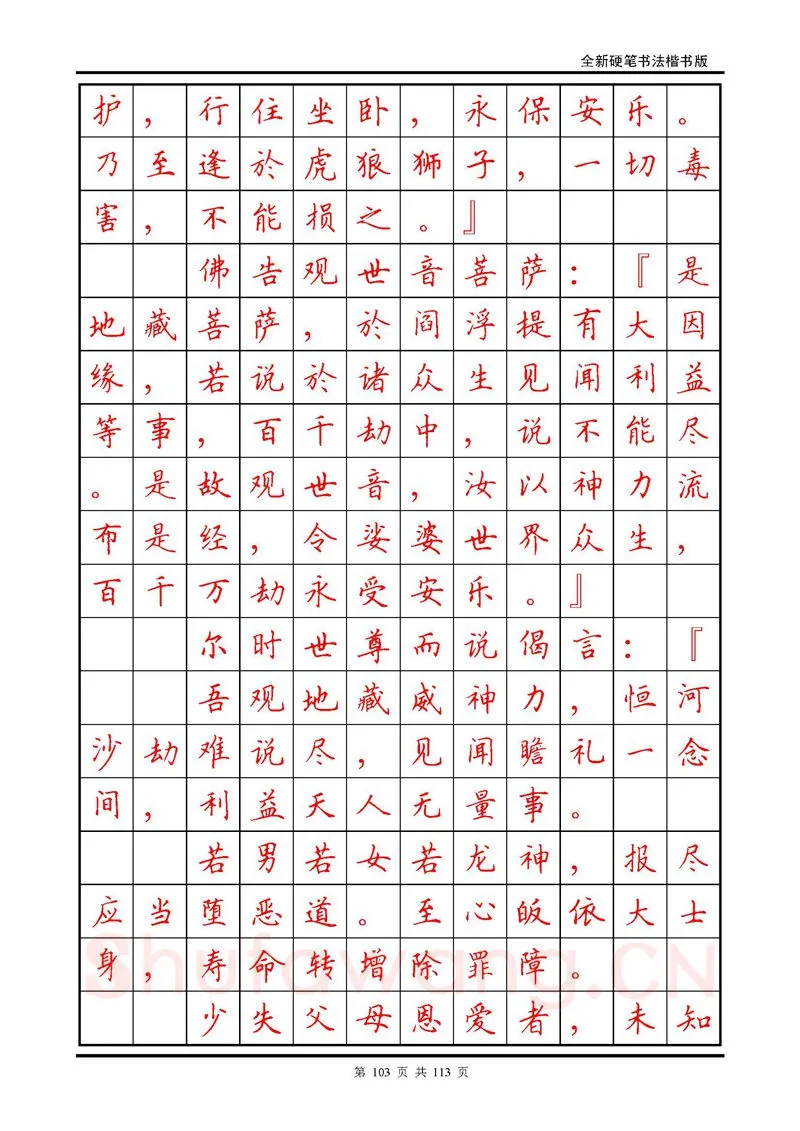 全新硬笔书法楷书版
护，行住坐卧，永保安乐。
乃至逢於虎狼狮子，一切毒
害，不能损之。』
佛告观世音菩萨：『是
地藏菩萨，於阎浮提有大因
缘，若说於诸众生见闻利益
等事，百千劫中，说不能尽
。是故观世音，汝以神力流
布是经，令娑婆世界众生，
百千万劫永受安乐。』
尔时世尊而说偈言：『
吾观地藏威神力，恒河
沙劫难说尽，见闻瞻礼一念
间，利益天人无量事。
若男若女若龙神，报尽
应当堕恶道。至心皈依大士
身，寿命转增除罪障。
少失父母恩爱者，未知
Shufawang.CN
第 103 页 共 113 页